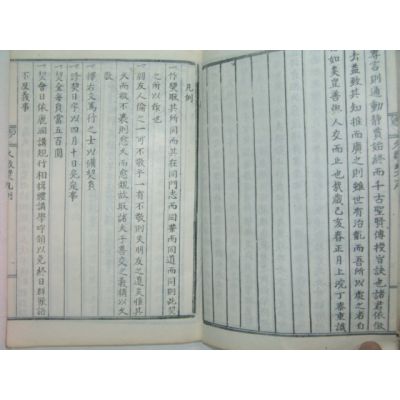 尊言則通動靜貫始終而千古聖賢傳授旨訣也諸君依倣
去益致其知推而廣之則雖世有治亂而吾所以處之者自
如矣豈善與人交而止也哉歲己亥春正月上浣丁泰東識
凡例
一竹契取其所同而其同門志而同業而同道而同則此契
之所以設也
一朋友人倫之一也不可不敬平一有不敬則失朋友之道矣惟其
久而敬不衰則愈久而愈親故取諸夫子善交之義稱以久
敬契
一擇右文篤行之士以備契員
一講契日字以四月十日完定事
一契金每員當五百圓
一契會日依鹿洞講規行相揖禮講學呼額以免終日群聚語
不及義事
久敬契凡例